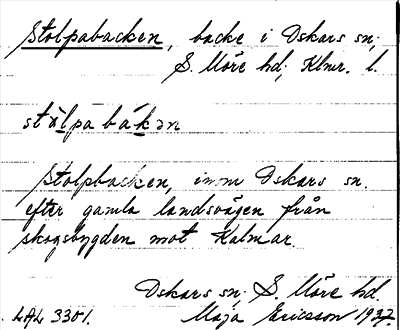 Stolpabacken, backe i Oskars sn;
S. Möre hd; Klmr. l.
stålpabákən
Stolpbacken, inom Oskars sn.
efter gamla landsvägen från
skogsbygden mot Kalmar.
Oskars sn; S. Möre hd.
LAL 3301. Maja Ericsson 1937.